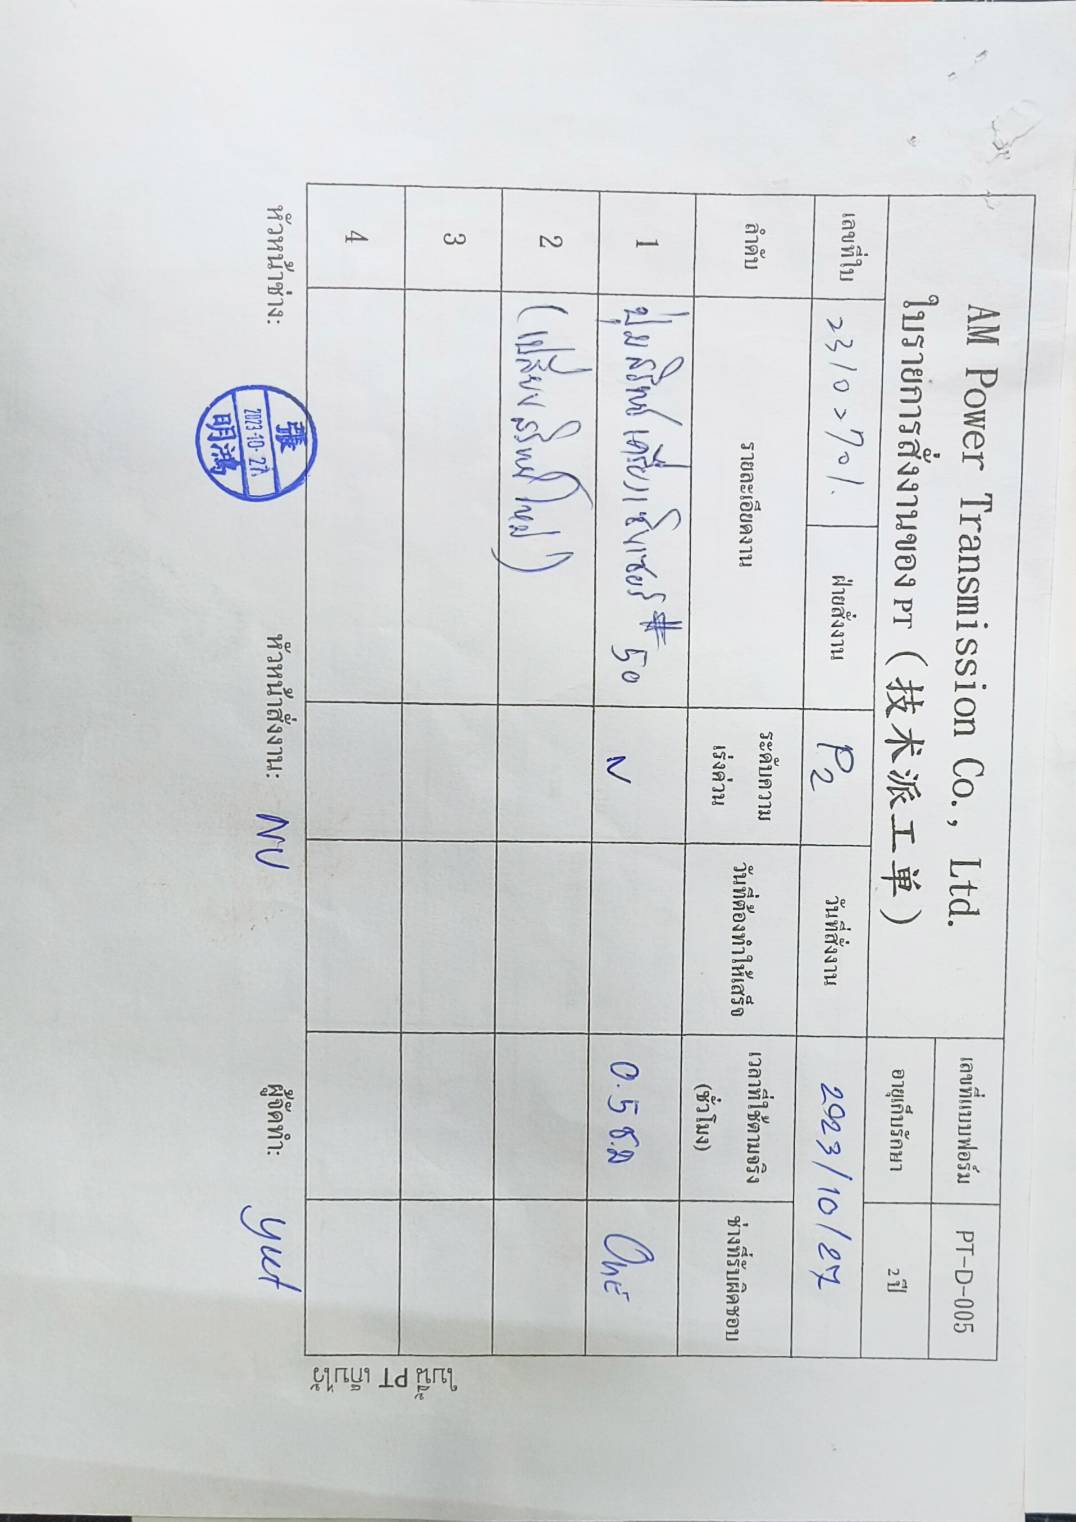 AM Power Transmission Co., Ltd.
ใบรายการสั่งงานของ PT (技术派工单)
เลขที่แบบฟอร์ม PT-D-005
อายุเก็บรักษา 2 ปี
เลขที่ใบ 23102701. ฝ่ายสั่งงาน P2 วันที่สั่งงาน 2023/10/27
ลำดับ รายละเอียดงาน ระดับความเร่งด่วน วันที่ต้องทำให้เสร็จ เวลาที่ใช้ตามจริง (ชั่วโมง) ช่างที่รับผิดชอบ
1 ปุ่มสวิทซ์เครื่อง #50 N 0.5 ช.ม One
2 (เปลี่ยนสวิทซ์ใหม่)
3
4
หัวหน้าช่าง: 張 2023-10-27 明鴻 หัวหน้าสั่งงาน: NU ผู้จัดทำ:
ใบนี้ PT เก็บไว้